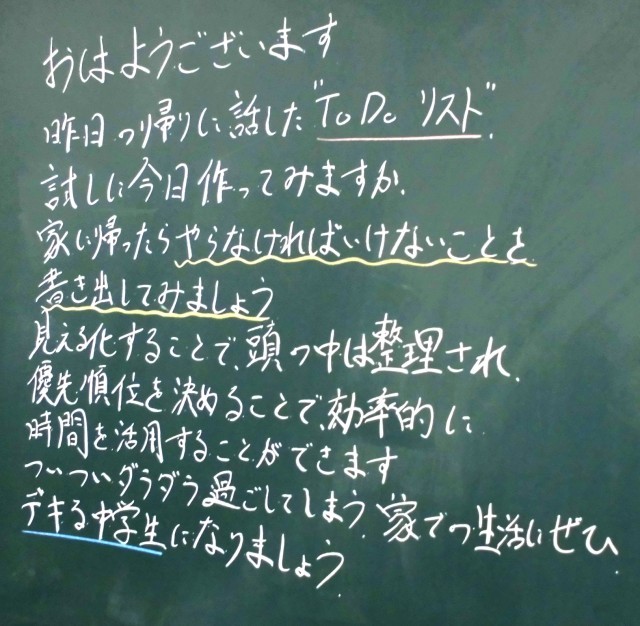 おはようございます
昨日の帰りに話した"ToDo リスト".
試しに今日作ってみますか.
家に帰ったらやらなければいけないことを
書き出してみましょう
見える化することで、頭の中は整理され、
優先順位を決めることで、効率的に
時間を活用することができます
ついついダラダラ過ごしてしまう、家での生活にぜひ
デキる中学生になりましょう.